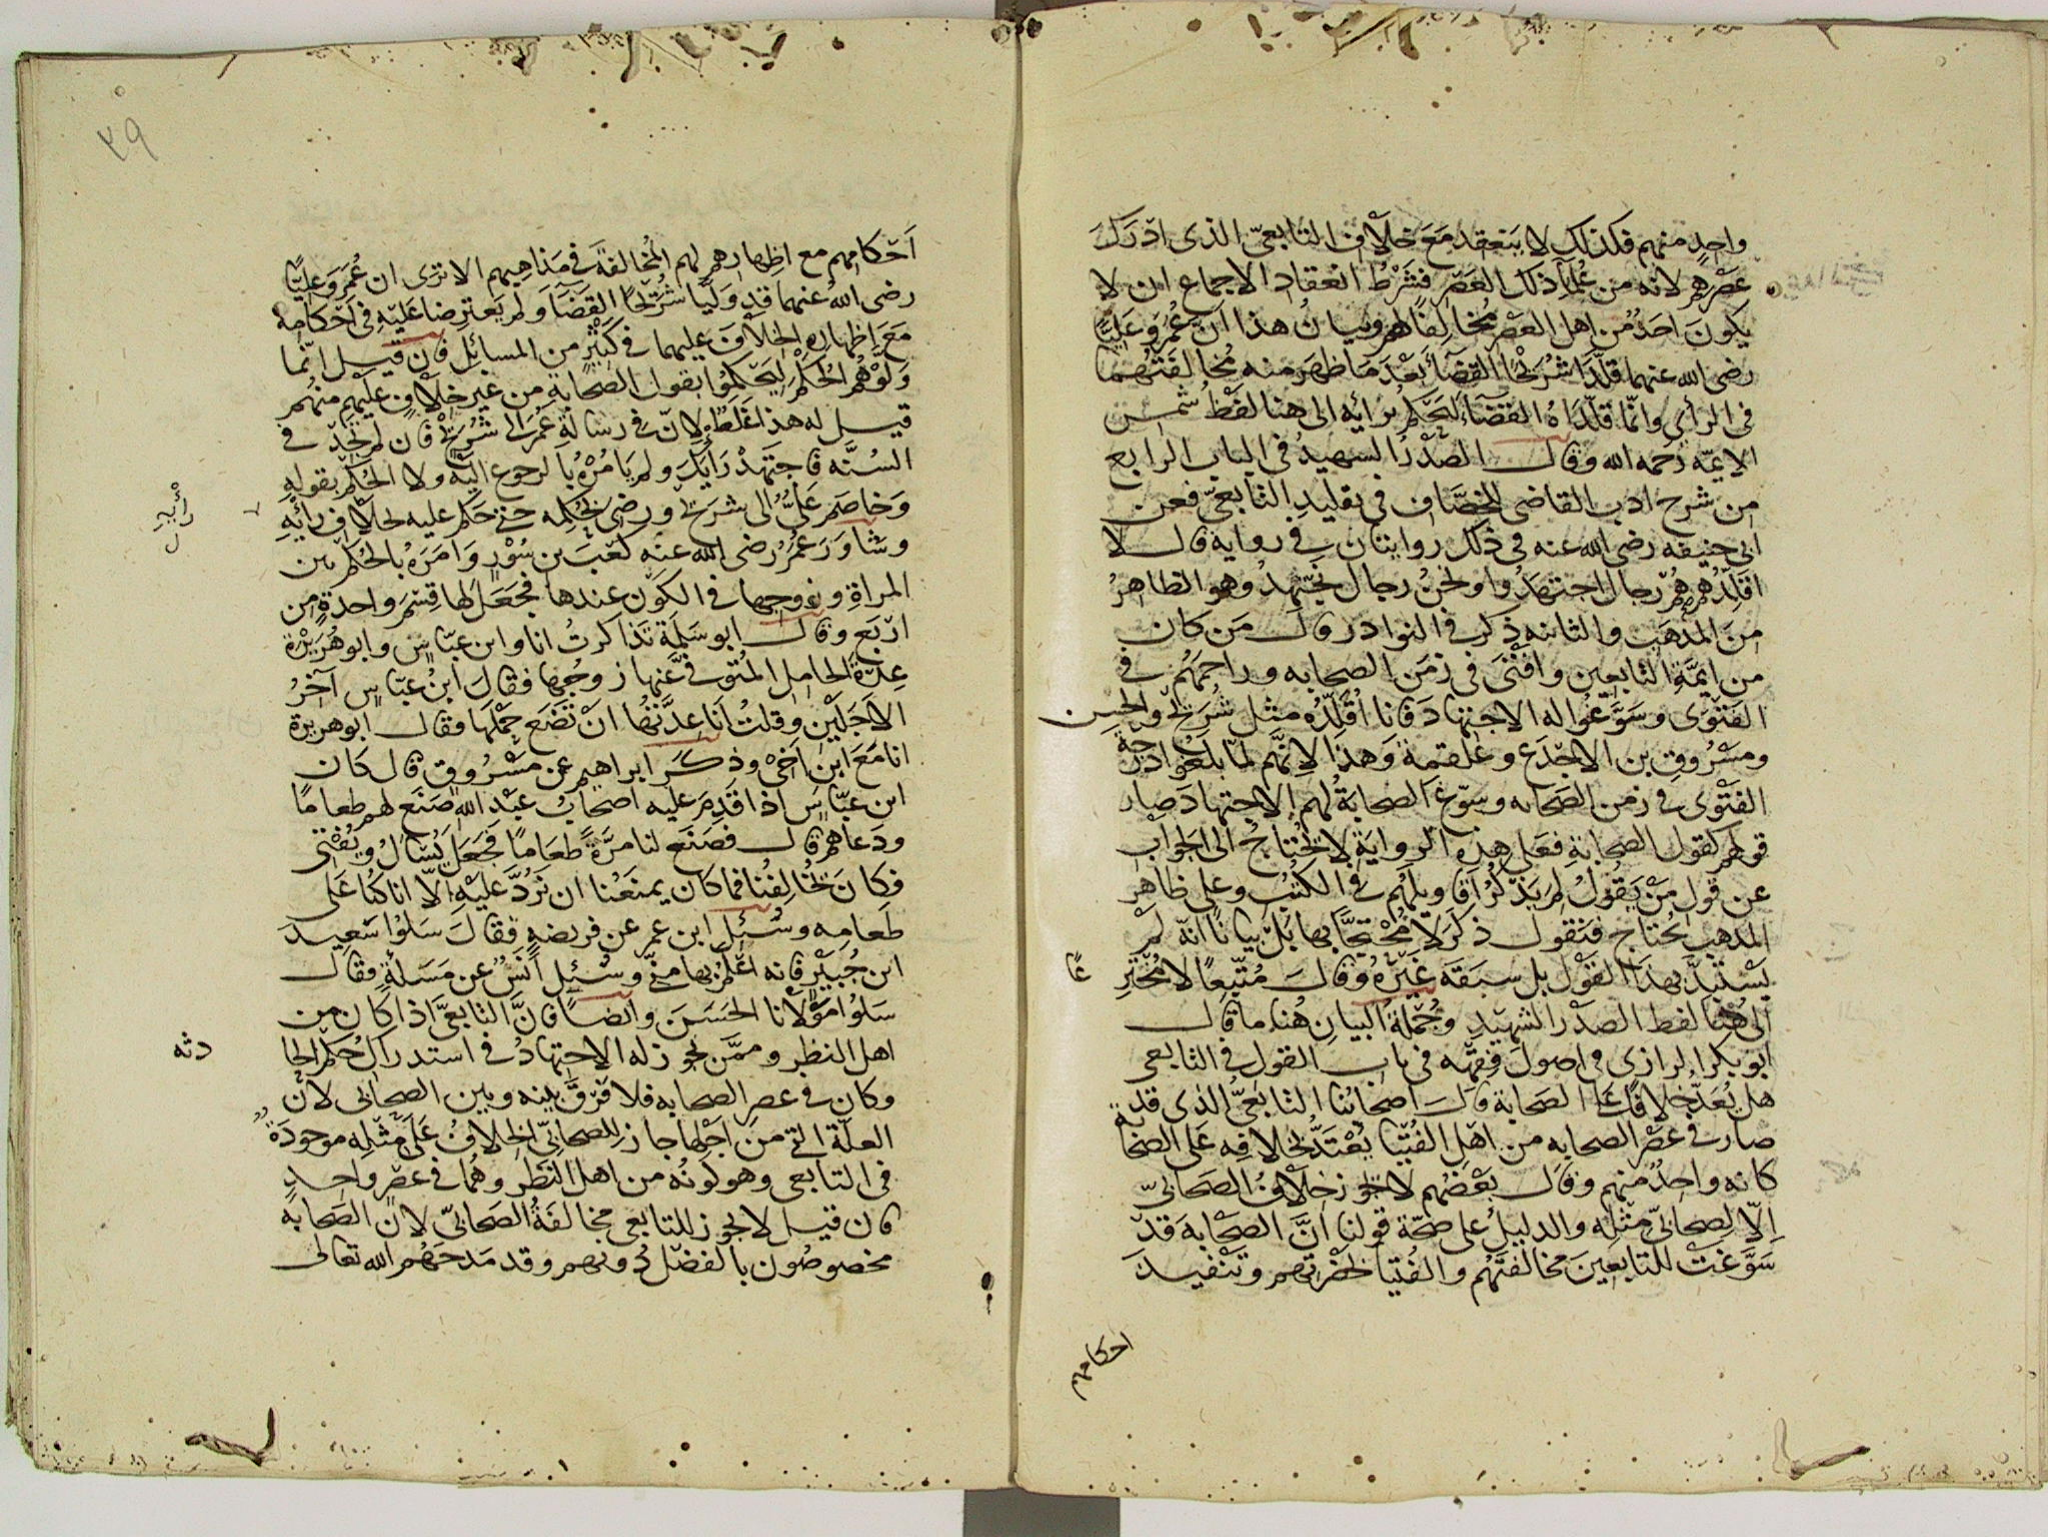 واحدٍ منهم فكذلك لا ينعقد مَعَ خلاف التابعىّ الذى ادْرَكَ
عصْرهم لانه من علمآء ذلك العَصْر فشَرْطُ انعقاد الاجماع ان لا
يكونَ احَدٌ من اهل العَصْر مُخالِفًا لهم وبيانُ هذا انّ عُمَر وَعَليًّا
رضى الله عنهما قلّدَا شُرَيْحًا القضآءَ بَعْدَ مَا ظهَرَ منه مُخالفَتهُما
فى الرأىِ وانّما قلّدَاهُ القضَآءَ ليَحْكم برَائِهِ الى هنا لفظ شمسِ
الايمّه رَحمه الله وقال الصّدْرُ الشهيدُ فى الباب الرابع
من شرح ادب القاضى للخصَّاف فى تقليدِ التابعىّ فعن
ابى حنيفه رضى الله عنه فى ذلك روايتان فى رواية قال لا
اقلِّدُهم هُمْ رجال اجتهَدُوا ونحنُ رجال نجْتهدُ وهو الظاهرُ
منَ المذهَب والثانيه ذكر فى النوادر قال مَن كان
من ايمّةِ التابعين وافْتَى فى زمَن الصحابه وزاحمَهُم فى
الفَتْوَى وسَوَّغُوا له الاجتهادَ فانا اُقلّدُهُ مثل شُرَيحٍ والحسن
ومسْرُوقِ بن الاجْدَع وعَلْقمةَ وَهذا لانّهم لمّا بلغُوا دَرَجة
الفتْوى فى زمن الصَحابه وسوّغ الصحابةُ لهم الاجتهادَ صار
قولهم كقول الصحابةِ فعَلى هذِه الروايَةِ لا يُحْتاجُ الى الجوابِ
عن قول مَنْ يَقُولُ لِمَ يَذْكُر اقاويلَهُم فى الكتُب وعلى ظاهر
المذهبِ يُحْتاجُ فنقول ذكَرَ لا مُحْتَجًّا بها بَلْ بيانًا انّه لمْ
يَسْتبِدَّ بهذا القوْل بل سبَقَه غَيْرُهُ وقالَ مُتّبِعًا لا مُخْتَرِ
عًا
الى هُنا لفظ الصدْر الشهيدِ وجُمْلةُ البيانِ هُنا ما قال
ابو بكرٍ الرازى فى اصول فِقهه فى باب القول فى التابعى
هل يُعَدُّ خِلافًا على الصَحابة قال اصْحابُنا التابعىُّ الذى قد
صار فى عصْر الصحابه من اهْل الفُتْيا يُعْتَدُّ بخلافه عَلى الصَحابة
كانه واحِدٌ منهم وقال بعْضُهم لا يجوز خِلافُ الصحَابىّ
اِلّا لِصحابىٍّ مثْلِه والدليلُ على صحّة قولنا انَّ الصحَابةَ قدْ
سَوَّغتْ للتابعينَ مخالفتَهُم والفُتيا بحَضرتِهم وتَنْفيذَ
احكامهم
٣٩
اَحْكامهم مع اظهارهم لهم المُخالفةَ فى مذاهبِهم الا ترى ان عُمَرَ وَعَليًّا
رضى اللهُ عنهما قد وَلّيا شُرَيْحًا القضآءَ ولم يَعترضا عَليْهِ فى احْكامِهِ
مَعَ اِظهارِه الخلافَ عليهما فى كثيرٍ من المسائل فان قيل انّما
وَلّوْهُم الحُكم ليَحْكمُوا بقول الصَحابةِ من غير خلافٍ عليْهم منهُم
قيل له هذا غلطٌ لانّ فى رسالة عُمَرَ الى شُرَيْحٍ فان لم تجدْ فى
السُنّه فاجتهدْ رَأيَكَ ولم يَامُرْهُ بالرجوع اليْهِ ولا الحُكم بقوله
وَخاصَم عَلىٌّ الى شريحٍ ورضى بحُكمِه حتى حَكم عليه بخلاف رائِهِ
رأيه
ل
وشاوَرَ عُمَرُ رضى الله عنه كَعْبَ بن سُوْرٍ وَامَرَهُ بالحُكْم بين
المراةِ وزوجها فى الكوْنِ عندها فجَعَلَ لها قِسْمَ واحدةٍ من
ارْبَع وقال ابو سَلمَة تذاكرتُ انا وابن عبّاسٍ وابو هُرَيْرة
عِدّةَ الحامِل المُتوفى عَنها زوجُها فقالَ ابنُ عبّاسٍ آخرُ
الاجَليْن وقلتُ انا عِدَّتُها انْ تَضَع حَمْلَها فقال ابو هريرة
انا مَعَ ابن اَخى وذكَر ابراهيم عن مَسْرُوقٍ قال كان
ابن عبّاسٍ اذا قَدِمَ عليه اصحابُ عبْد الله صَنَع لهم طعامًا
ودَعاهم قال فصَنَع لنا مرَّةً طعَامًا فجَعَلَ يَسْالُ ويُفْتى
فكانَ يُخالفُنا فما كان يمنَعُنا ان نَرُدَّ عَليْهِ الّا انا كنّا عَلى
طَعامِه وسُئِلَ ابن عمر عن فريضه فقالَ سَلوْا سَعيدَ
ابن جُبَيْرٍ فانه اعْلمُ بها منى وسُئِل اَنَسٌ عن مَسَلةٍ فقال
سَلوْا موْلانا الحسَنَ وايضًا فانّ التابعىَّ اذا كان من
اهل النظر وممَّن يجوز له الاجتهادُ فى استدراكِ حُكم الحا
دثه
وكان فى عصر الصحابه فلا فرْقَ بينه وبين الصحابى لانّ
العلّةَ التى من اجْلِها جاز للصحَابىّ الخِلافُ عَلى مِثْلِه موجودَةٌ
فى التابعى وهو كوْنُه من اهل النظر وهُما فى عصْرٍ واحدٍ
فان قيل لا يجوز للتابعى مخالَفةُ الصَحابىّ لانّ الصَحَابةَ
مخصوصُون بالفضْل دونهم وقد مَدحَهُم الله تعالى